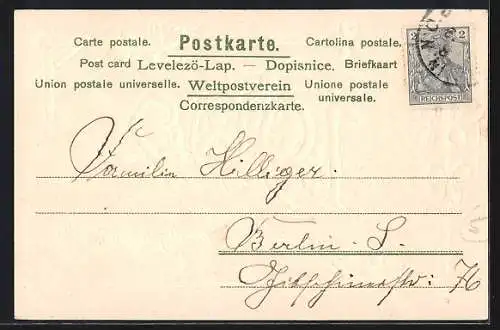 Carte postale. Postkarte. Cartolina postale.
Post card Levelezö-Lap. — Dopisnice. Briefkaart
Union postale universelle. Weltpostverein Unione postale universale.
Correspondenzkarte.
2 2
REICHSPOST
Familie Hilliger
Berlin. S.
Gitschinerstr: 76